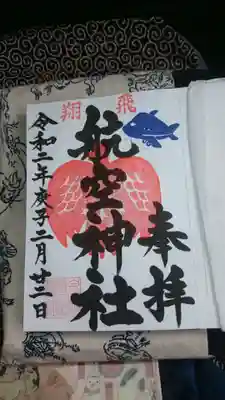 奉拝
飛翔
航空神社
令和二年庚子二月廿二日